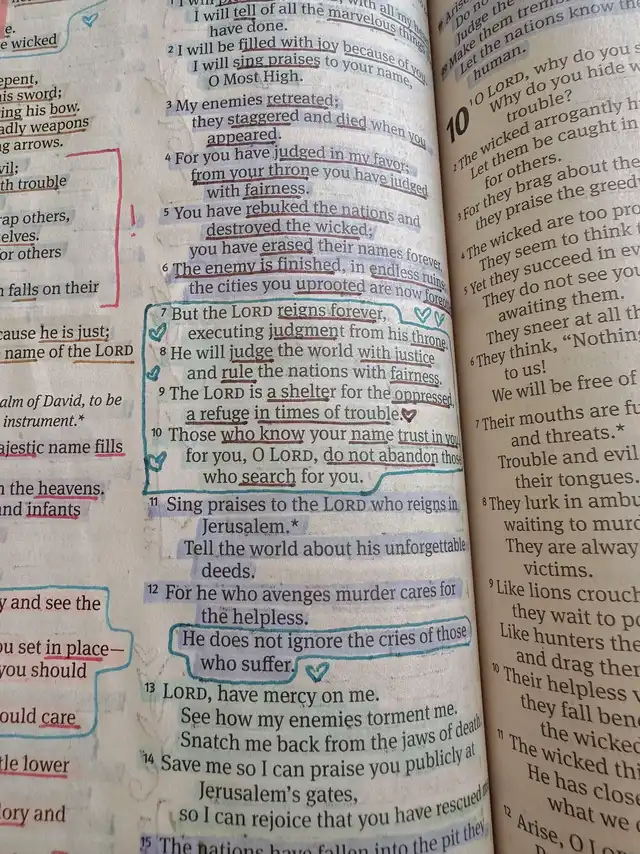 e.
e wicked
epent,
his sword;
ing his bow.
adly weapons
g arrows.
vil;
th trouble
rap others,
selves.
for others
n falls on their
cause he is just;
name of the LORD
alm of David, to be
instrument.*
ajestic name fills
n the heavens.
and infants
y and see the
ou set in place—
you should
ould care
tle lower
lory and
1 I will praise with all my
I will tell of all the marvelous things
have done.
2 I will be filled with joy because of you
I will sing praises to your name,
O Most High.
3 My enemies retreated;
they staggered and died when you
appeared.
4 For you have judged in my favor;
from your throne you have judged
with fairness.
5 You have rebuked the nations and
destroyed the wicked;
you have erased their names forever.
6 The enemy is finished, in endless ruins;
the cities you uprooted are now forgo
7 But the LORD reigns forever,
executing judgment from his throne.
8 He will judge the world with justice
and rule the nations with fairness.
9 The LORD is a shelter for the oppressed,
a refuge in times of trouble.
10 Those who know your name trust in you,
for you, O LORD, do not abandon those
who search for you.
11 Sing praises to the LORD who reigns in
Jerusalem.*
Tell the world about his unforgettable
deeds.
12 For he who avenges murder cares for
the helpless.
He does not ignore the cries of those
who suffer.
13 LORD, have mercy on me.
See how my enemies torment me.
Snatch me back from the jaws of death.
14 Save me so I can praise you publicly at
Jerusalem's gates,
so I can rejoice that you have rescued
15 The nations have fallen into the pit they
Arise
Do no
Judge the
Make them trem
Let the nations know th
human.
10 1 O LORD, why do you s
Why do you hide w
trouble?
2 The wicked arrogantly h
Let them be caught in
for others.
3 For they brag about the
they praise the greed
4 The wicked are too pro
They seem to think
5 Yet they succeed in ev
They do not see yo
awaiting them.
They sneer at all th
6 They think, “Nothin
to us!
We will be free of
7 Their mouths are fu
and threats.*
Trouble and evil
their tongues.
8 They lurk in ambu
waiting to murd
They are alway
victims.
9 Like lions crouch
they wait to po
Like hunters the
and drag them
10 Their helpless v
they fall bene
the wicked
11 The wicked thi
He has close
what we d
12 Arise, O Lo